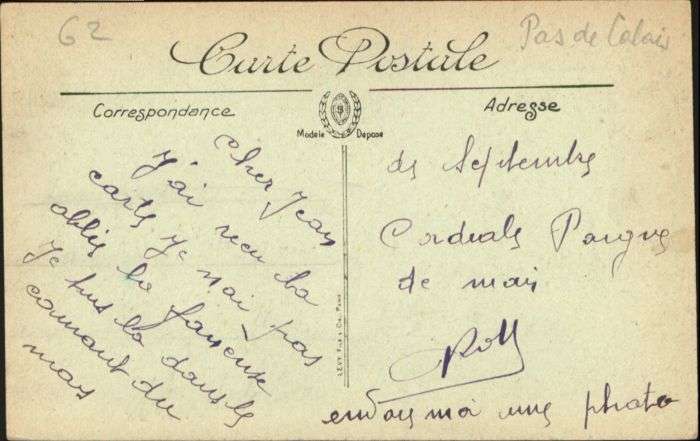 62
Pas de Calais
Carte Postale
Correspondance
Adresse
Modèle Déposé
cher Jean
j'ai recu ta
carte je n'ai pas
oblié la fameuse
je tus la dans le
courant du
mois
de Septembre
Cordiale Poigne
de main
envois moi une photo
LEVY Fils & Cie, Paris